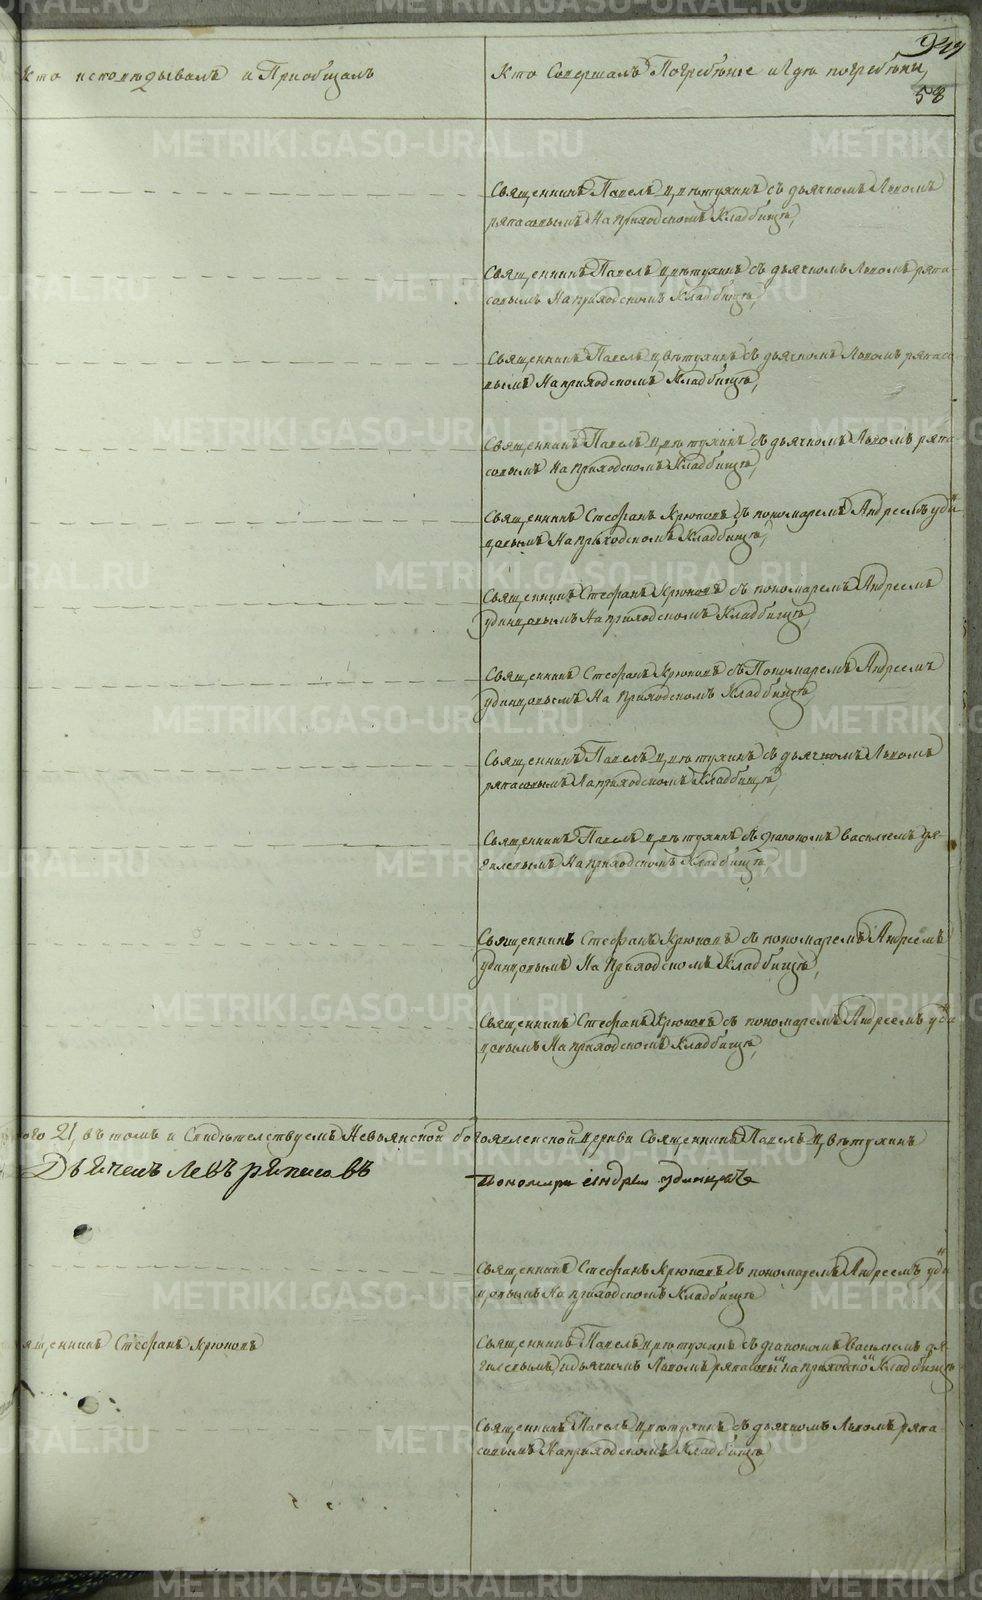 Кто исповѣдывалъ и Пріобщалъ
Кто Совершалъ Погребѣніе и Гдѣ погребѣны,
58
Священникъ Павелъ Цвѣтухинъ съ дьячкомъ Львомъ
ряпасовымъ На приходскомъ Кладбищѣ,
Священникъ Павелъ Цвѣтухинъ съ дьячкомъ Львомъ ряпа-
совымъ На приходскомъ Кладбищѣ,
Священникъ Павелъ Цвѣтухинъ съ дьячкомъ Львомъ ряпасо
вымъ На приходскомъ Кладбищѣ,
Священникъ Павелъ Цвѣтухинъ съ дьячкомъ Львомъ ряпа
совымъ На приходскомъ Кладбищѣ,
Священникъ Стефанъ Крюковъ съ пономаремъ Андреемъ удин
цовымъ На приходскомъ Кладбищѣ,
Священникъ Стефанъ Крюковъ съ пономаремъ Андреемъ
удинцовымъ На приходскомъ Кладбищѣ,
Священникъ Стефанъ Крюковъ съ Пономаремъ Андреемъ
удинцовымъ На приходскомъ Кладбищѣ,
Священникъ Павелъ Цвѣтухинъ съ дьячкомъ Львомъ
ряпасовымъ На приходскомъ Кладбищѣ,
Священникъ Павелъ Цвѣтухинъ съ діакономъ василіемъ дя-
гилевымъ На приходскомъ Кладбищѣ,
Священникъ Стефанъ Крюковъ съ пономаремъ Андреемъ
удинцовымъ На Приходскомъ Кладбищѣ,
Священникъ Стефанъ Крюковъ съ пономаремъ Андреемъ уди
нцовымъ На приходскомъ Кладбищѣ,
21, въ томъ и Свидѣтелствуемъ Невьянской богоявленской Церкви Священникъ Павелъ Цвѣтухинъ
Дьячекъ Левъ ряпасовъ
Пономарь андрей удинцовъ
Священникъ Стефанъ Крюковъ съ пономаремъ Андреемъ удин
цовымъ На приходскомъ Кладбищѣ
ященникъ Стефанъ Крюковъ
Священникъ Павелъ Цвѣтухинъ съ діакономъ василіемъ дя-
гилевымъ, и дьячкомъ Львомъ ряпасовымъ на приходскомъ Кладбищѣ
Священникъ Павелъ Цвѣтухинъ съ дьячкомъ Львомъ ряпа
совымъ На приходскомъ Кладбищѣ,
METRIKI.GASO-URAL.RU